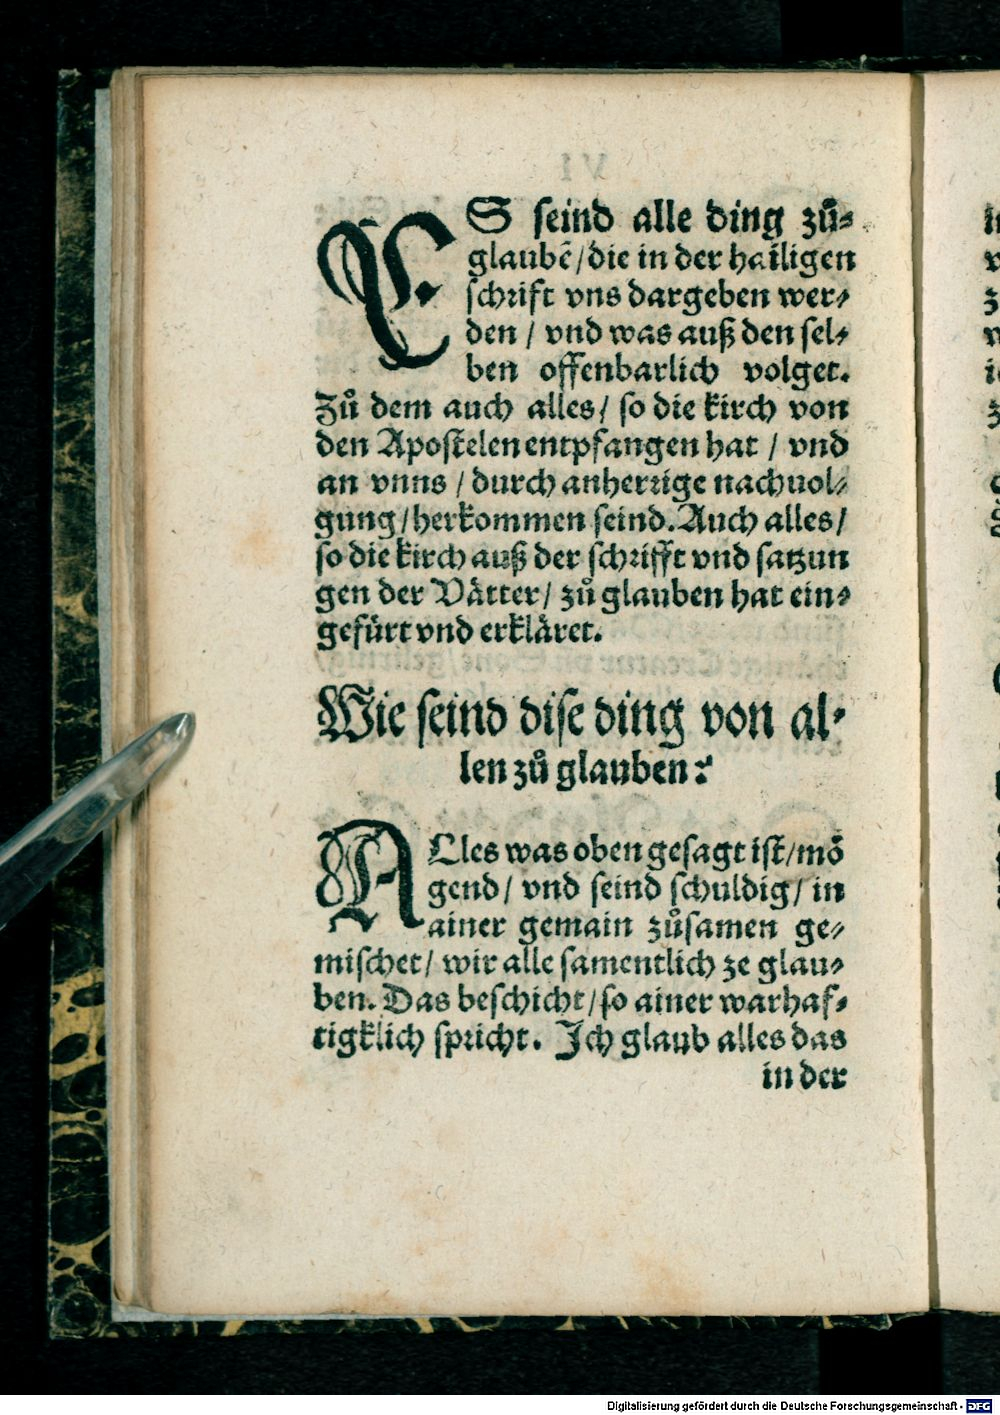 ES seind alle ding zuͦ⸗
glaubē/die in der hailigen
schrift vns dargeben wer⸗
den / vnd was auß den sel⸗
ben offenbarlich volget.
Zuͦ dem auch alles/ so die kirch von
den Apostelen entpfangen hat / vnd
an vnns / durch anherrige nachuol⸗
gung/herkommen seind. Auch alles/
so die kirch auß der schrifft vnd satzun
gen der Vaͤtter/ zuͦ glauben hat ein⸗
gefuͤrt vnd erklaͤret.
Wie seind dise ding von al⸗
len zuͦ glauben?
ALles was oben gesagt ist/moͤ
gend/ vnd seind schuldig/ in
ainer gemain zuͦsamen ge⸗
mischet/ wir alle samentlich ze glau⸗
ben. Das beschicht/so ainer warhaf⸗
tigklich spricht. Ich glaub alles das
in der
Digitalisierung gefördert durch die Deutsche Forschungsgemeinschaft - DFG